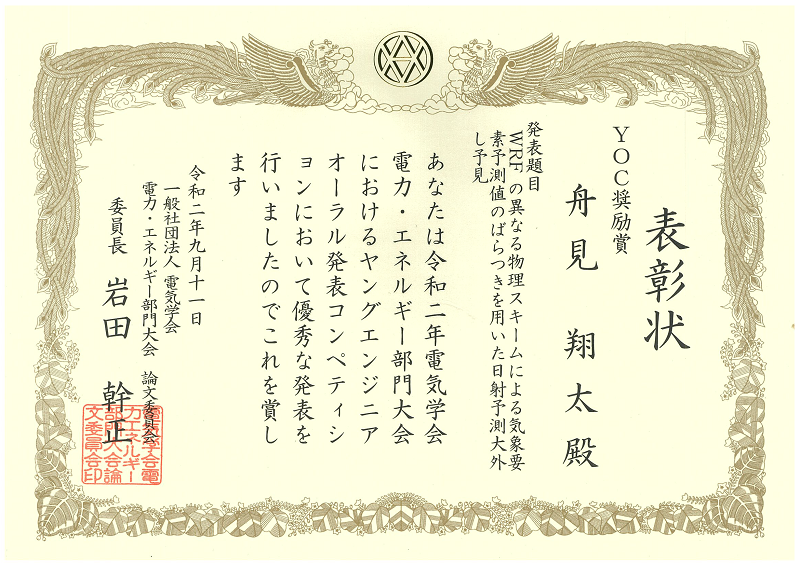 表彰状
YOC奨励賞
舟見 翔太殿
発表題目
WRFの異なる物理スキームによる気象要
素予測値のばらつきを用いた日射予測大外
し予見
あなたは令和二年電気学会
電力・エネルギー部門大会
におけるヤングエンジニア
オーラル発表コンペティシ
ョンにおいて優秀な発表を
行いましたのでこれを賞し
ます
令和二年九月十一日
一般社団法人 電気学会
電力・エネルギー部門大会 論文委員会
委員長 岩田 幹正
電気学会電
力エネルギー
部門大会論
文委員会印